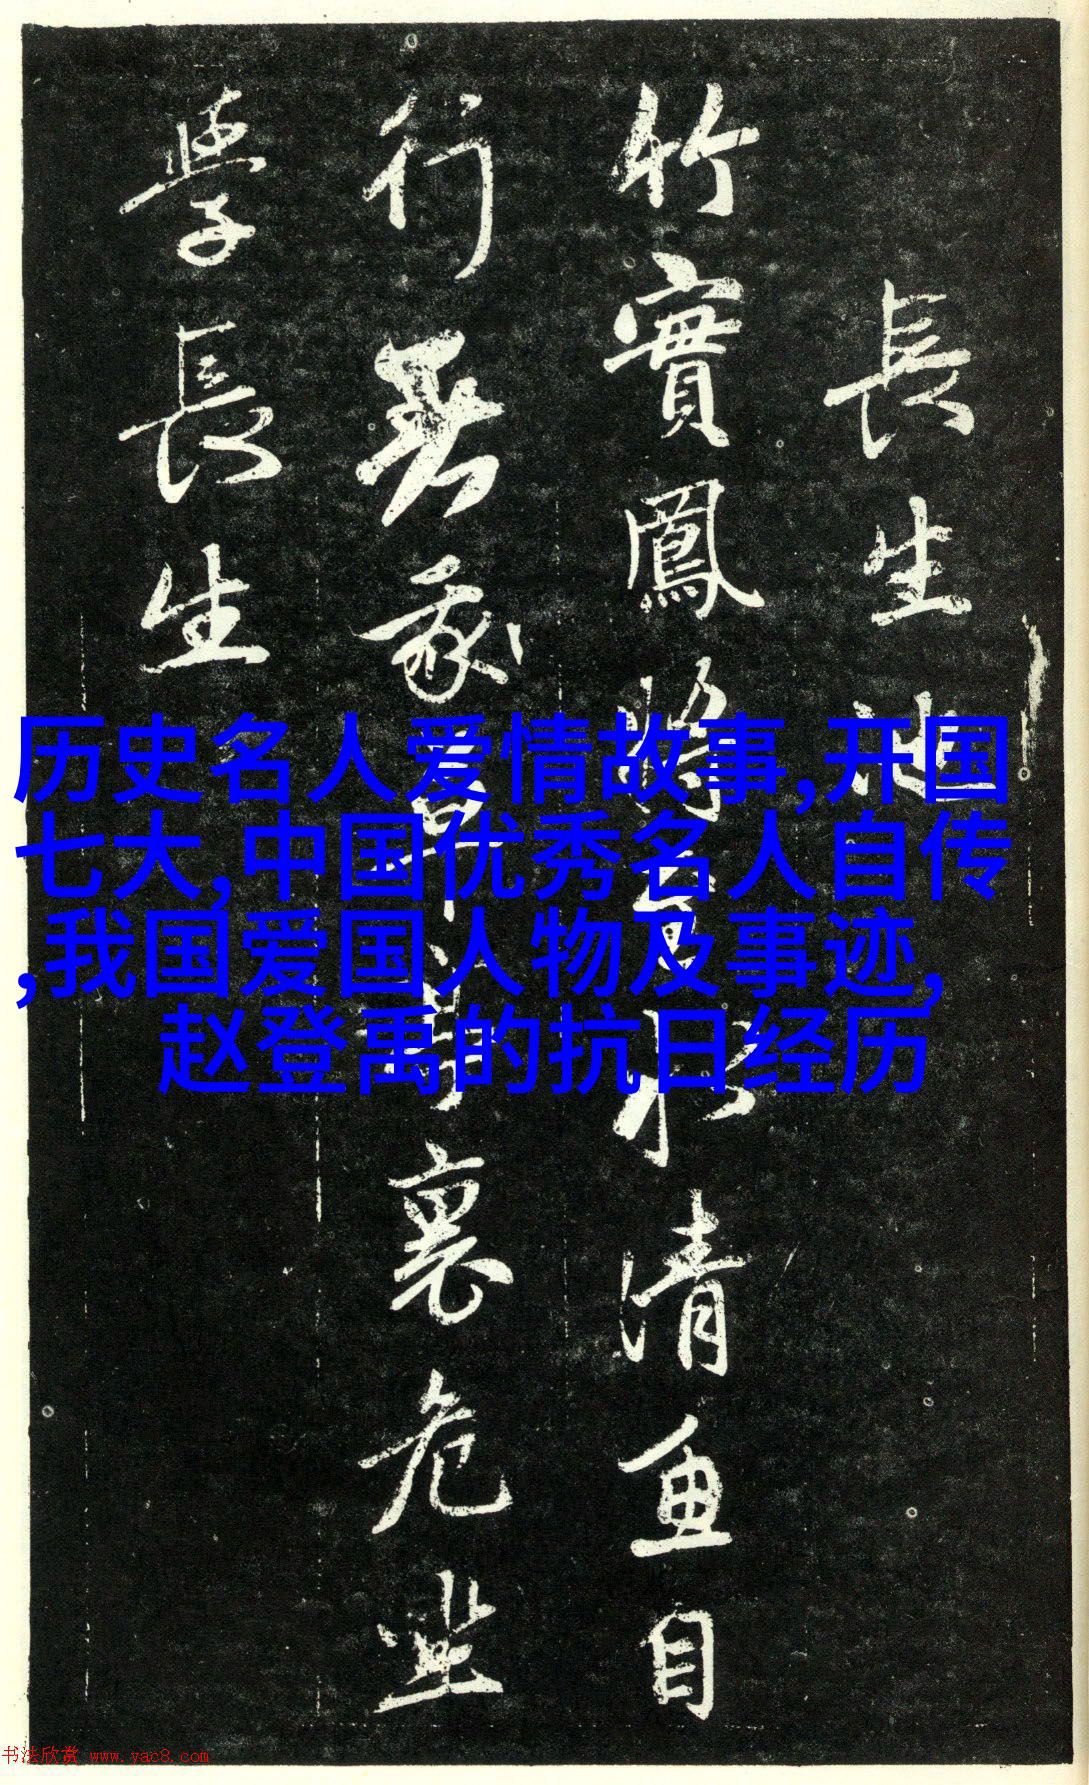 長生池
竹實鳳將水清魚自
行裏危坐
學長生
历史名人爱情故事,开国
七大,中国优秀名人自传
,我国爱国人物及事迹,
赵登禹的抗日经历
书法欣赏 www.yac8.com